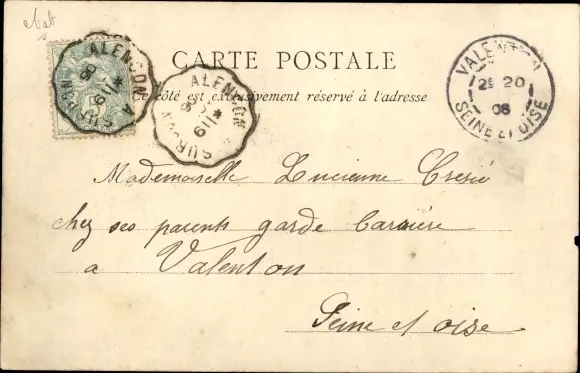 CARTE POSTALE
Ce côté est exclusivement réservé à l'adresse
ALENÇON A SURDON
ALENÇON SURDON
VALENTON
2E 20
06
SEINE ET OISE
Mademoiselle Lucienne
chez ses parents garde Barrière
a Valenton
Seine et oise